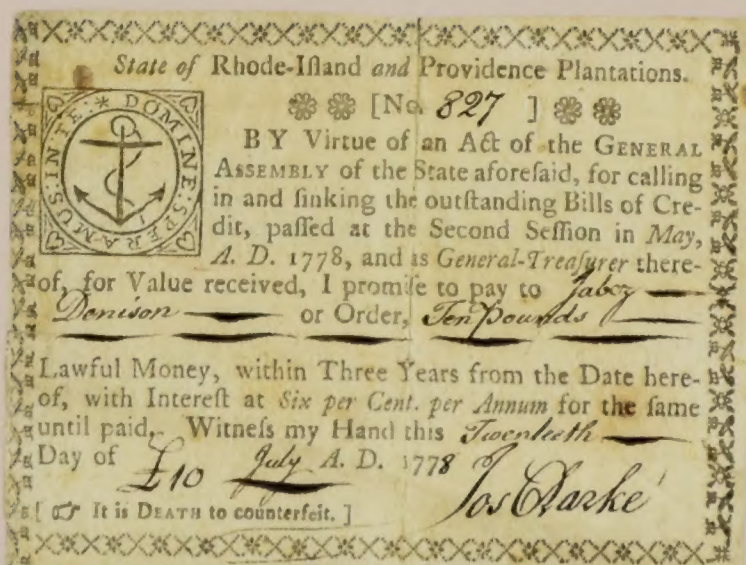 State of Rhode-Iſland and Providence Plantations.
[No. 827 ]
IN·TE·* DOMINE·SPERAMUS·
BY Virtue of an Act of the GENERAL
ASSEMBLY of the State aforeſaid, for calling
in and ſinking the outſtanding Bills of Cre-
dit, paſſed at the Second Seſſion in May,
A. D. 1778, and as General-Treaſurer there-
of, for Value received, I promiſe to pay to Jabez
Denison or Order, Ten Pounds
Lawful Money, within Three Years from the Date here-
of, with Intereſt at Six per Cent. per Annum for the ſame
until paid. Witneſs my Hand this Twentieth
Day of July A. D. 1778
£10
Jos Clarke
[ ☞ It is DEATH to counterfeit. ]